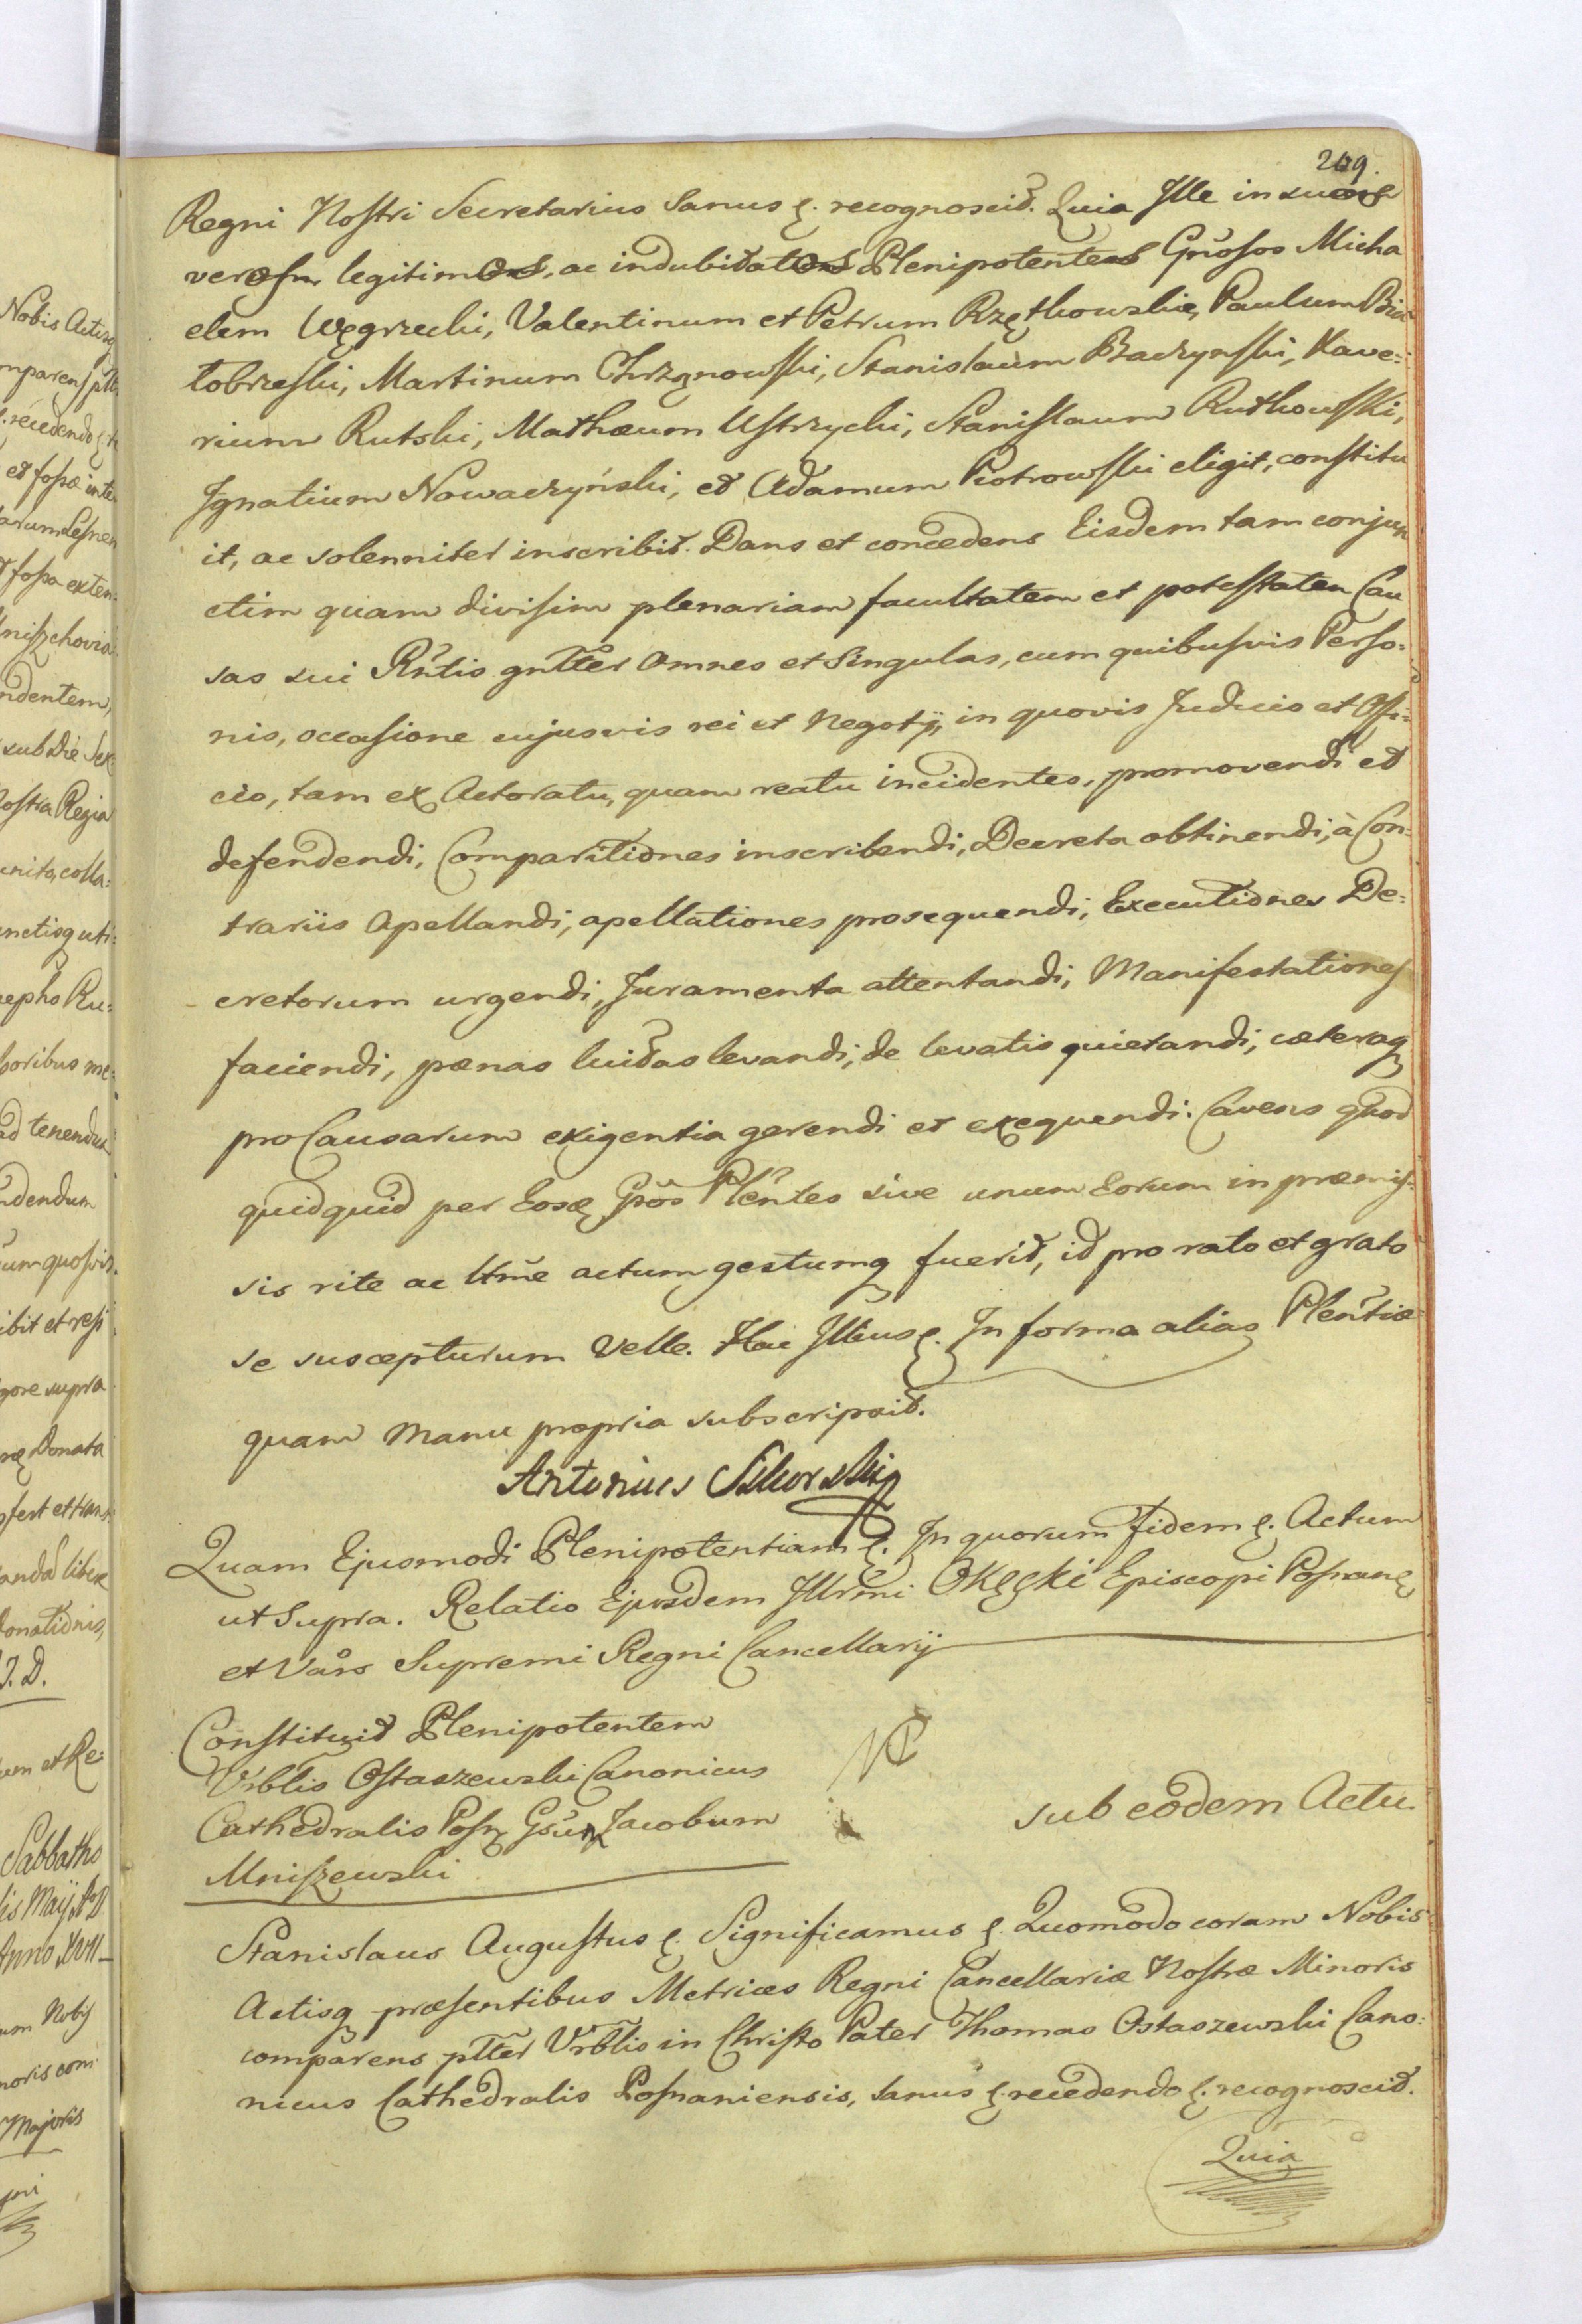 209.
Regni Nostri Secretarius Sanus &. recognoscit. Quia Ille in suos
veros legitimos, ac indubitatos Plenipotentes Gnosos Micha
elem Węgrzecki, Valentinum et Petrum Rzętkowskie, Paulum Bia
łobrzeski, Martinum Chrząnowski, Stanislaum Baczynski, Xave:
rium Rutski, Mathæum Ustrzycki, Stanislaum Rutkowski,
Ignatium Nowaczyński, et Adamum Piotrowski eligit, constitu
it, ac solenniter inscribit. Dans et concedens Eisdem tam conjun
ctim quam divisim plenariam facultatem et potestatem Cau
sas sui Rntis gnlter Omnes et Singulas, cum quibusvis Perso:
nis, occasione cujusvis rei et Negotij, in quovis Judicio et Offi:
cio, tam ex Actoratu, quam reatu incidentes, promovendi et
defendendi, Comparitiones inscribendi, Decreta obtinendi, à Con:
trariis Apellandi, apellationes prosequendi, Executiones De:
cretorum urgendi, Juramenta attentandi, Manifestationes
faciendi, pænas luitas levandi, de levatis quietandi, cæteraq
pro Causarum exigentia gerendi et exequendi. Cavens quod
quidquid per Eosd Gsos Plentes sive unum Eorum in præmis:
sis rite ac ltme actum gestumq fuerit, id pro rato et grato
se suscepturum velle. Hac Illius &. In forma alias Plentiæ
quam Manu propria subscripsit.
Antonius Sikorski
Quam Ejusmodi Plenipotentiam &. In quorum fidem &. Actum
ut Supra. Relatio Ejusdem Illrmi Okęcki Episcopi Posnan
et Vars Supremi Regni Cancellarij
Constituit Plenipotentem
Vrblis Ostaszewski Canonicus
Cathedralis Posn Gsum Jacobum
Mniszewski
sub eodem Actu.
Stanislaus Augustus &. Significamus &. Quomodo coram Nobis
Actisq præsentibus Metrices Regni Cancellariæ Nostræ Minoris
comparens plter Vrblis in Christo Pater Thomas Ostaszewski Cano:
nicus Cathedralis Posnaniensis, Sanus &. recedendo &. recognoscit.
Quia